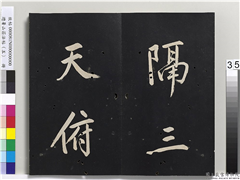 隔三
天俯
35